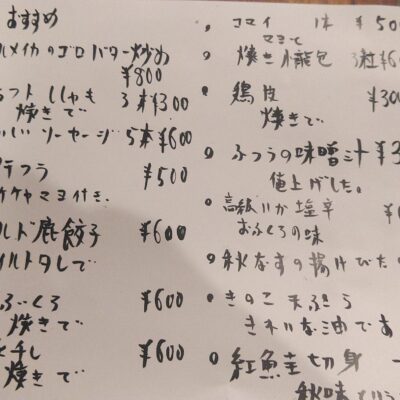 おすすめ
ルメイカのゴロバター炒め
¥800
フト ししゃも 3本¥300
焼きで
いしいソーセージ 5本¥600
ポテフラ ¥500
ケチャマヨ付き.
ルド鹿餃子 ¥600
イルドタレで
ふくろ ¥600
焼きで
干し ¥600
焼きで
・コマイ 1本 ¥500
マヨで
・焼き小籠包 3粒¥60
・鶏皮 ¥300
焼きで
・ふつうの味噌汁 ¥3
値上げした。
・高級いか塩辛
おふくろの味
・秋なすの揚げびた
・きのこ天ぷら
きれいな油であ
・紅鮭切身
秋味